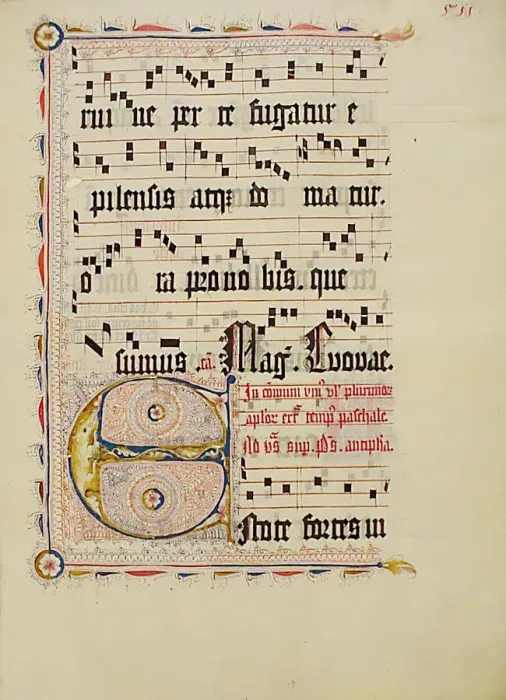 rui ne per te fugatur e
pilensis atqꝫ do ma tur.
o ra pro no bis. que
sumus .cā. Mag̃. Evovae.
In cōmuni vniꝰ vl' plurimoꝝ
aplor̄ ext̄ tempꝰ paschale.
Ad vs̄ sup. ps̄. antipha.
Estote fortes in